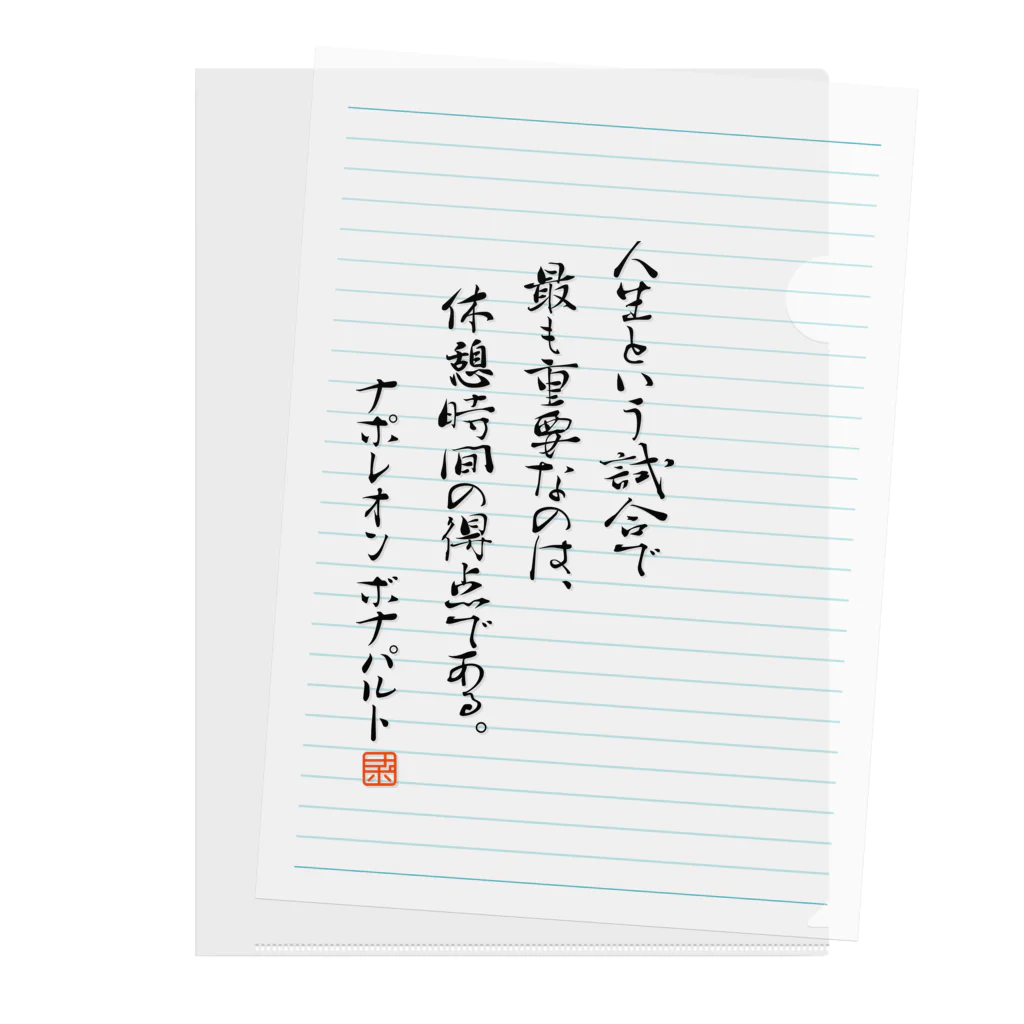 人生という試合で
最も重要なのは、
休憩時間の得点である。
ナポレオン ボナパルト